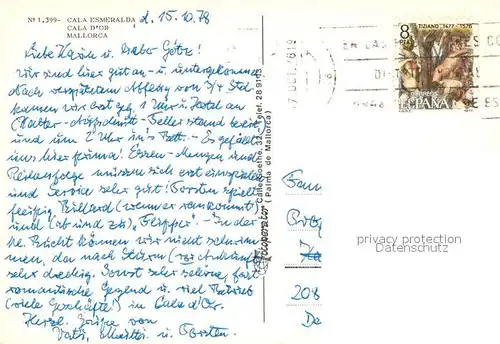 Nº 1.399- CALA ESMERALDA
CALA D'OR
MALLORCA
d. 15.10.78
Liebe Karin u. lieber Götz!
Wir sind hier gut an- u. untergekommen
Nach verspätetem Abflug von 3/4 Std.
kamen wir erst geg. 1 Uhr i. Hotel an
(Kalter-Aufschnitt-Teller stand bereit
und um 2 Uhr ins Bett.- Es gefällt
uns hier prima! Essen-Mengen und
Reihenfolge müssen sich erst einspielen
und Service sehr gut! Torsten spielt
fleißig Billard (wenn er rankommt)
und (ab und zu) "Flipper".- In der
Bucht können wir nicht schwimmen,
da nach Sturm
sehr dreckig. Sonst sehr schöne, fast
romantische Gegend u. viel Betrieb
(viele Geschäfte!) in Cala d'Or.
Herzl. Grüße von
Vati, Mutti u. Torsten.
Calle Goethe, 32 - Telef. 28 91
(Palma de Mallorca)
TIZIANO 1477-1576
8
PTAS
ESPAÑA
EN LAS
OCT. 1978
Fam
208
De
privacy protection
Datenschutz